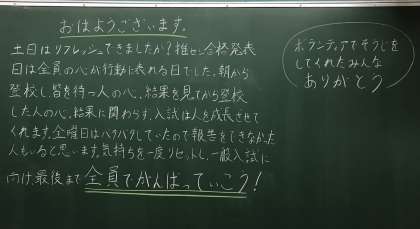 おはようございます。
土日はリフレッシュできましたか?推せん合格発表
日は全員の心が行動に表れる日でした。朝から
登校し皆を待つ人の心、結果を見てから登校
した人の心。結果に関わらず、入試は人を成長させて
くれます。金曜日はバタバタしていたので報告をできなかった
人もいると思います。気持ちを一度リセットし、一般入試に
向け、最後まで全員でがんばっていこう!
ボランティアでそうじを
してくれたみんな
ありがとう